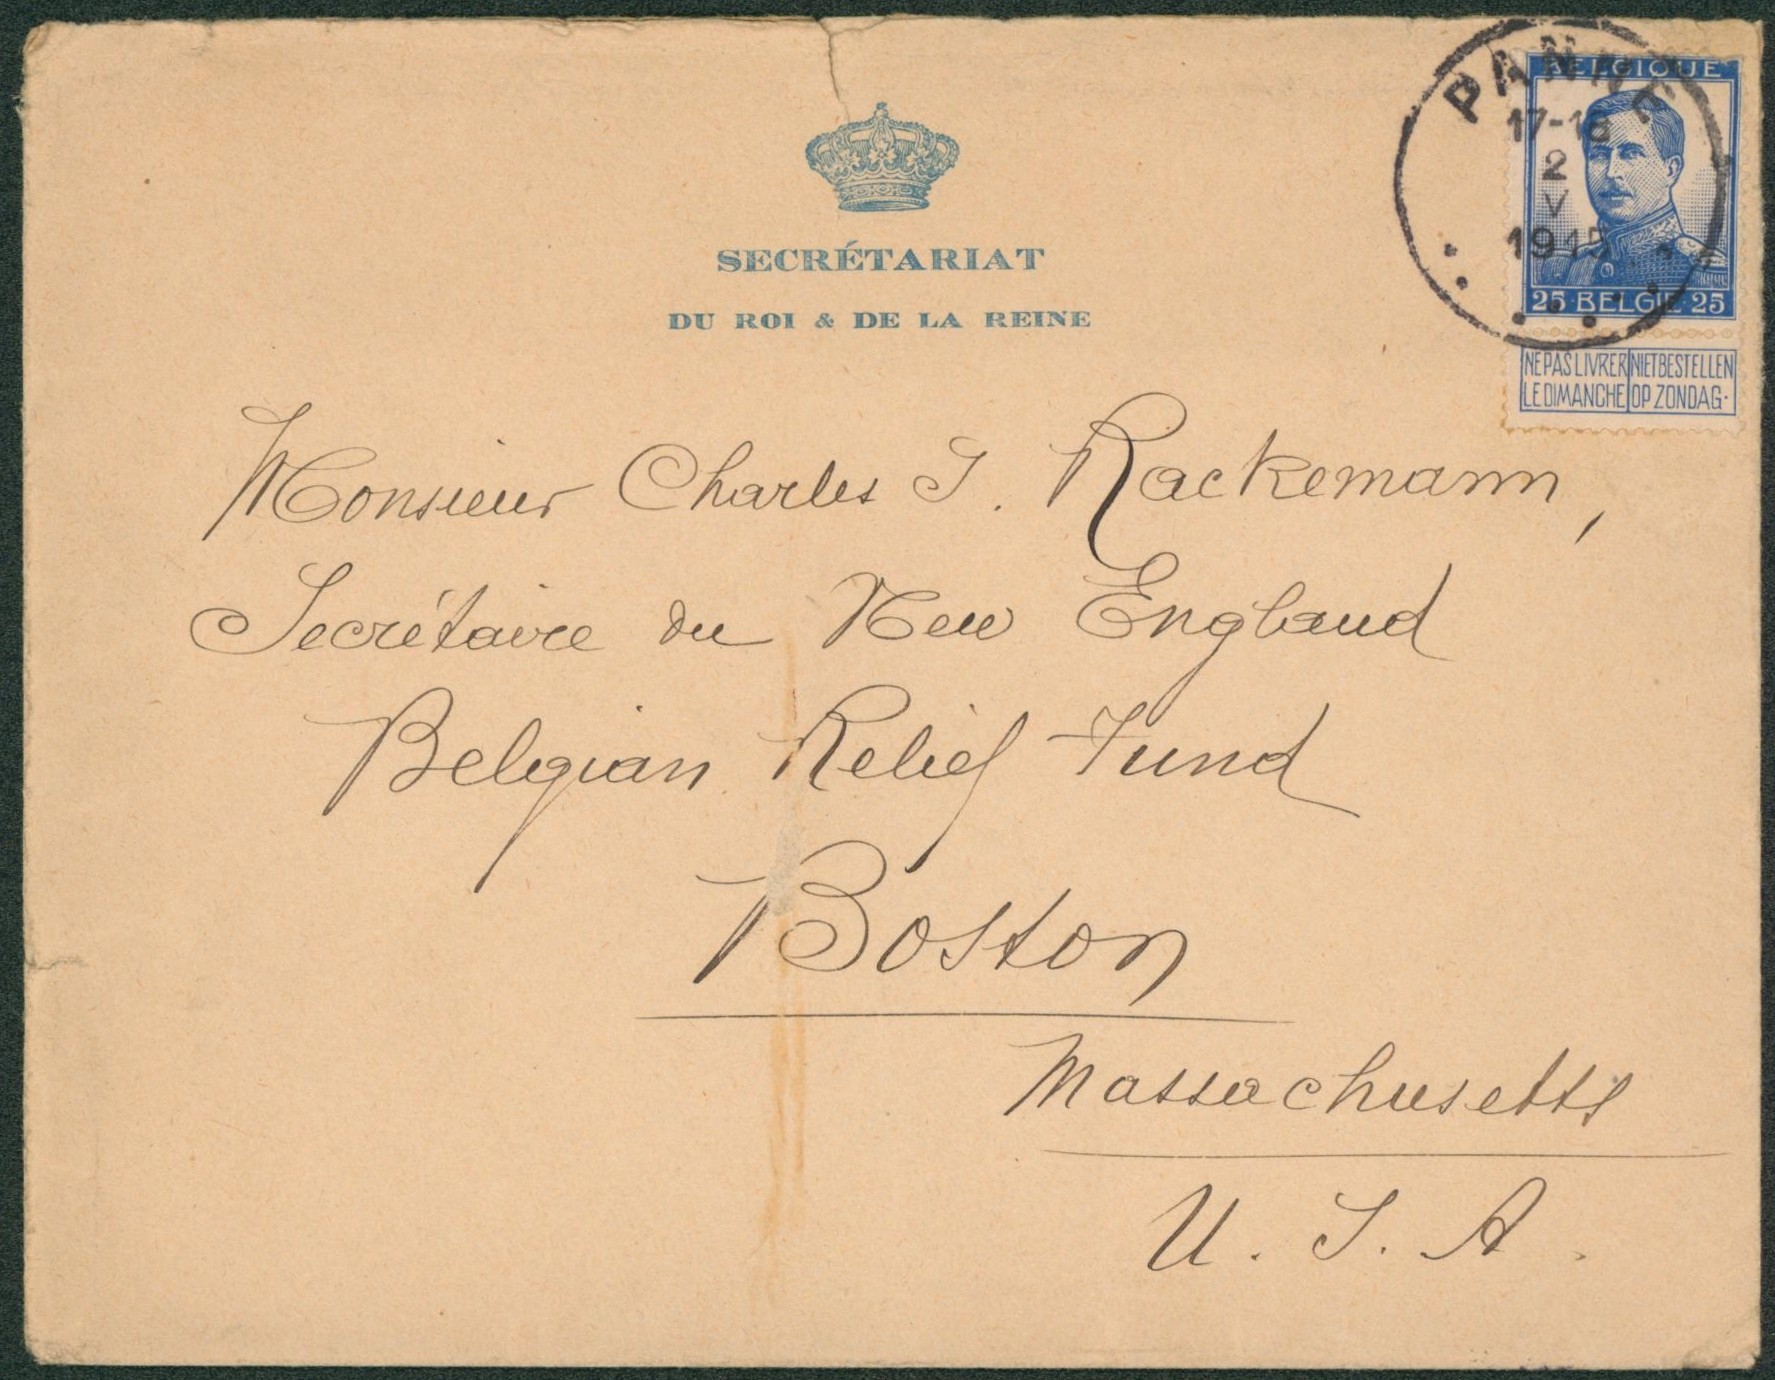 SECRÉTARIAT
DU ROI & DE LA REINE
PANNE
17-18
2
V
1915
BELGIQUE
25 · BELGIE · 25
NE PAS LIVRER NIET BESTELLEN
LE DIMANCHE OP ZONDAG.
Monsieur Charles S. Rackemann,
Secrétaire du New England
Belgian Relief Fund
Boston
Massachusetts
U. S. A.